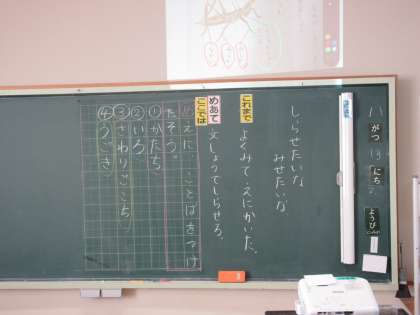 がつ
にち
ようび
しらせたいな
みせたいな
これまで
よくみて、えにかいた。
めあて
文しょうでしらせる。
ここでは
えに、ことばをつけ
たそう。
①かたち
②いろ
③さわりごこち
④うごき